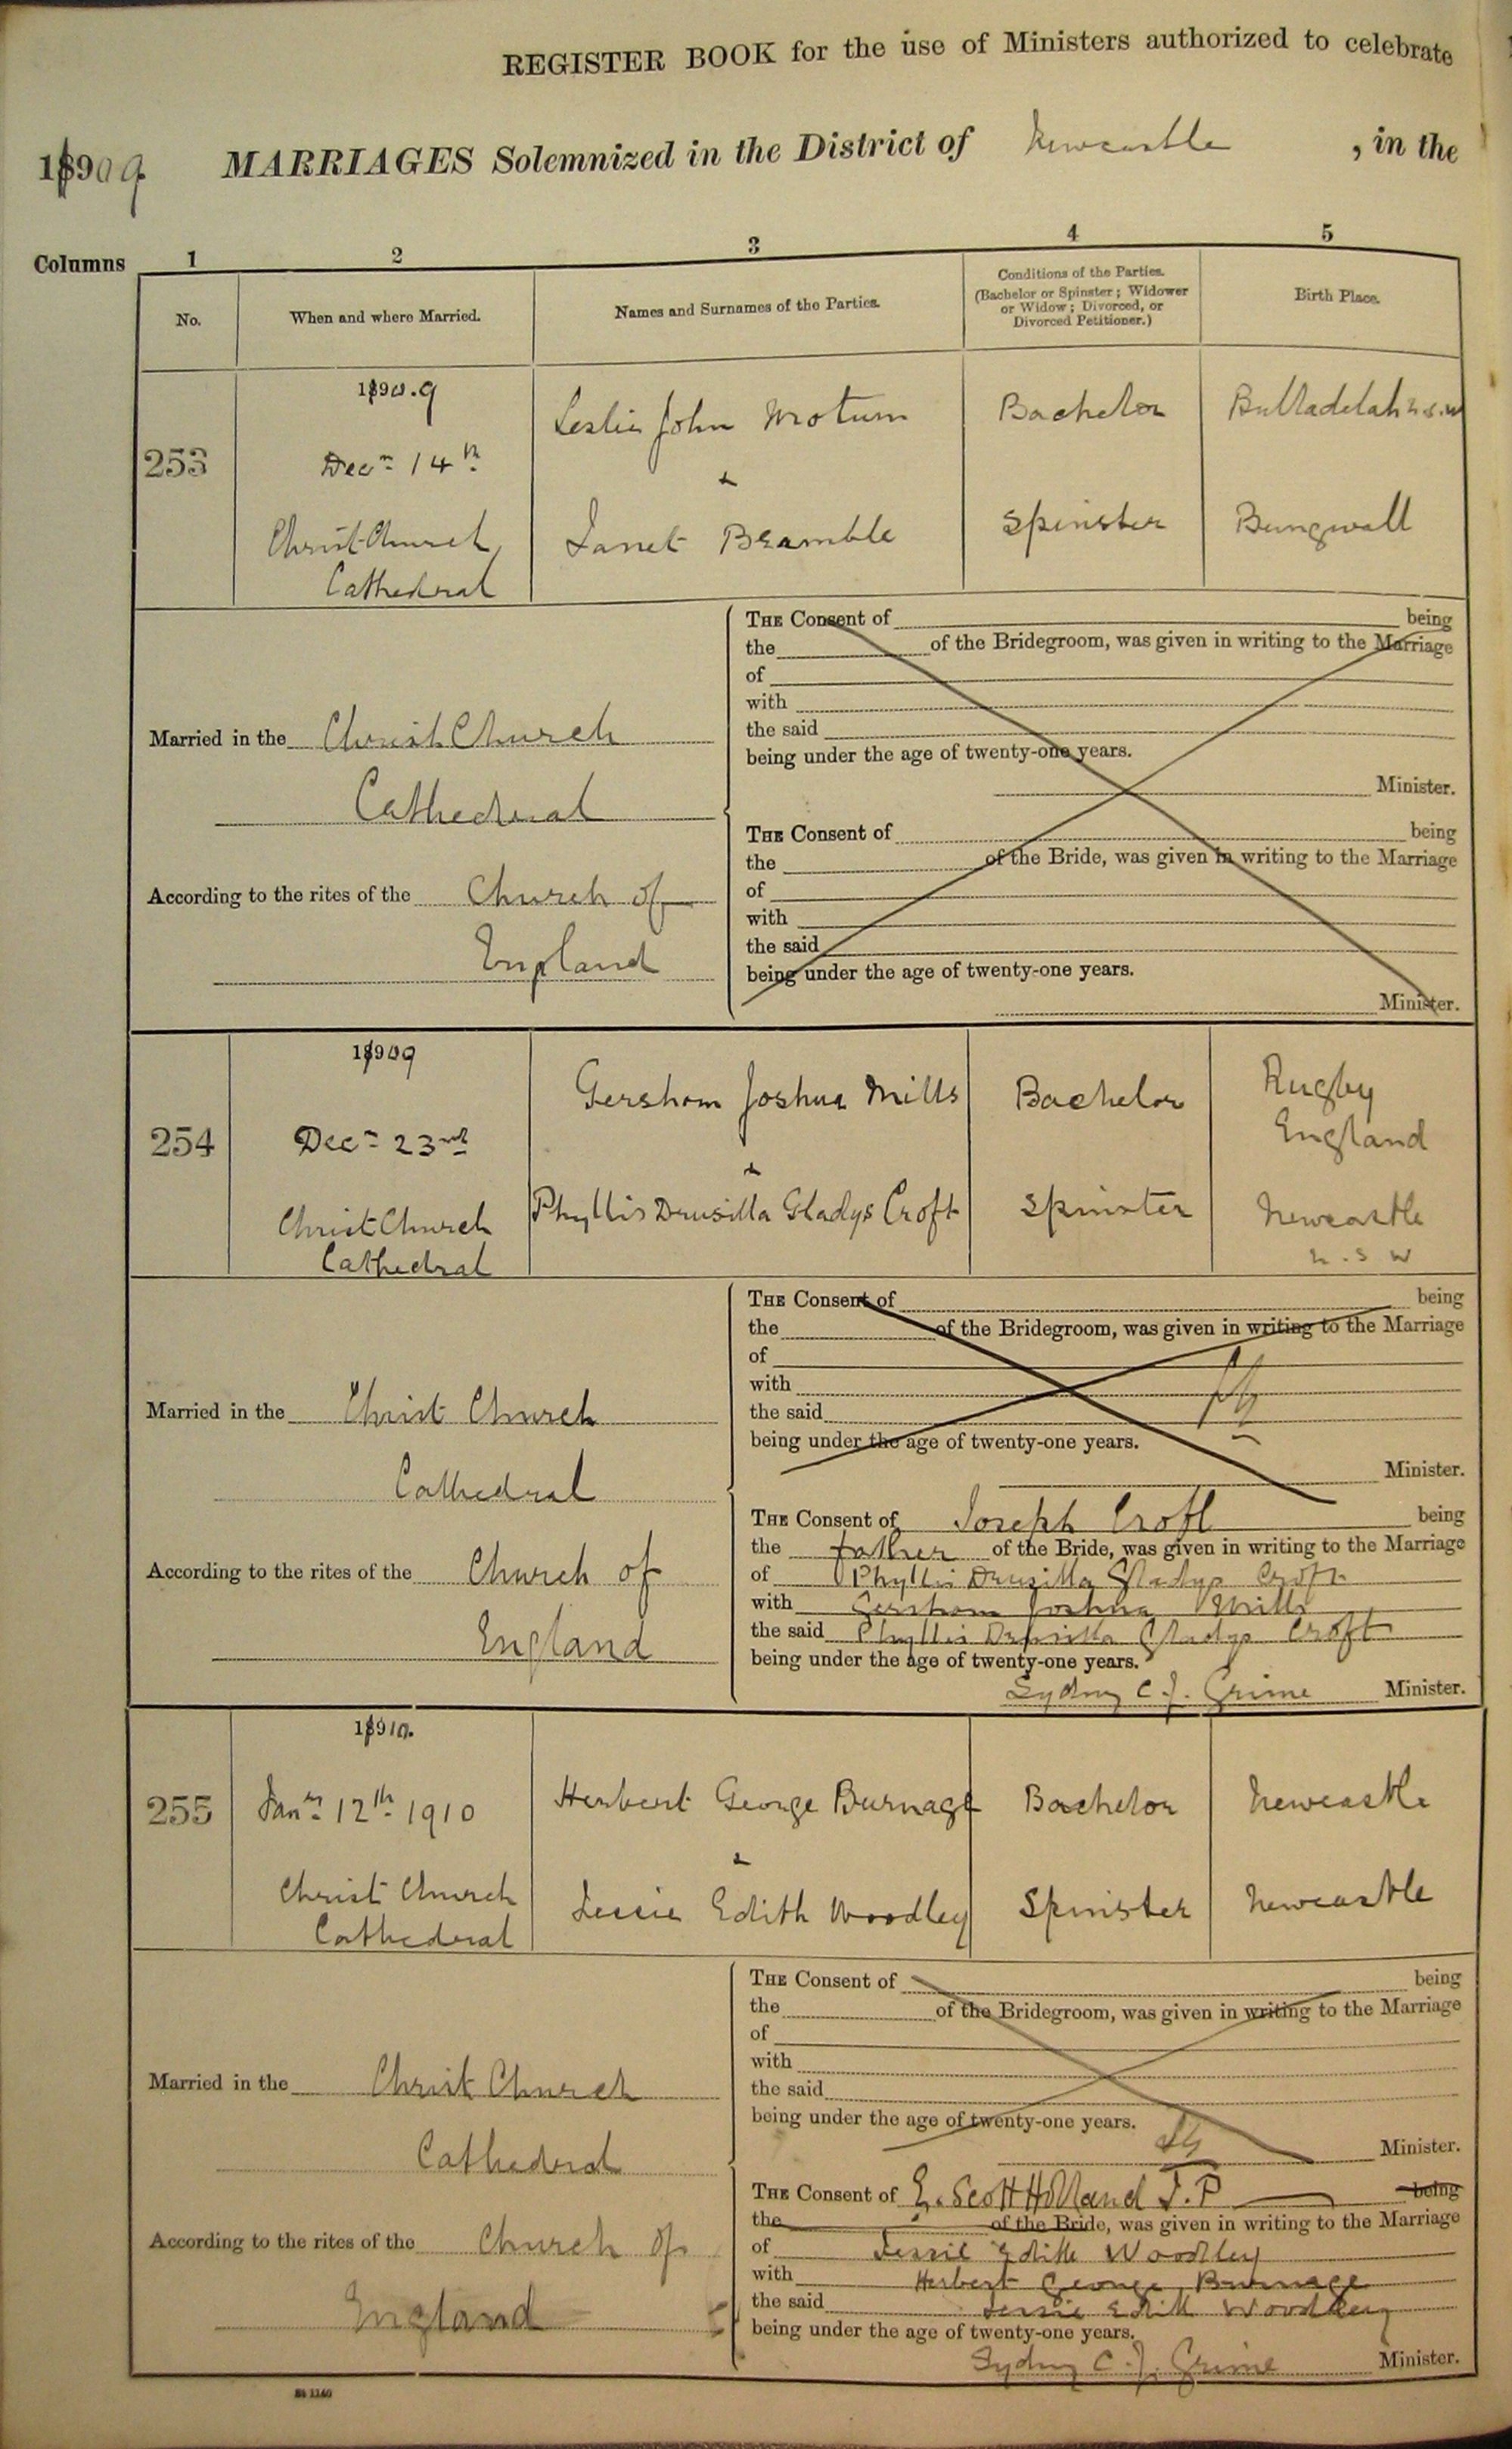 REGISTER BOOK for the use of Ministers authorized to celebrate
1909 MARRIAGES Solemnized in the District of Newcastle, in the
Columns 1 2 3 4 5
No. When and where Married. Names and Surnames of the Parties. Conditions of the Parties. (Bachelor or Spinster; Widower or Widow; Divorced, or Divorced Petitioner.) Birth Place.
1909
Leslie John Motum Bachelor Bulladelah N.S.W
253 Decr 14th
&
Christ Church Janet Bramble Spinster Bungwall
Cathedral
THE Consent of being
the of the Bridegroom, was given in writing to the Marriage
of
with
the said
being under the age of twenty-one years.
Minister.
Married in the Christ Church
Cathedral
According to the rites of the Church of
England
THE Consent of being
the of the Bride, was given in writing to the Marriage
of
with
the said
being under the age of twenty-one years.
Minister.
1909
Gershom Joshua Mills Bachelor Rugby
England
254 Decr 23rd
&
Christ Church Phyllis Drusilla Gladys Croft Spinster Newcastle
Cathedral N.S.W
THE Consent of being
the of the Bridegroom, was given in writing to the Marriage
of
with
the said
being under the age of twenty-one years.
Minister.
Married in the Christ Church
Cathedral
According to the rites of the Church of
England
THE Consent of Joseph Croft being
the father of the Bride, was given in writing to the Marriage
of Phyllis Drusilla Gladys Croft
with Gershom Joshua Mills
the said Phyllis Drusilla Gladys Croft
being under the age of twenty-one years.
Sydney C. J. Grime Minister.
1910.
255 Jany 12th 1910 Herbert George Burnage Bachelor Newcastle
&
Christ Church Jessie Edith Woodley Spinster Newcastle
Cathedral
THE Consent of being
the of the Bridegroom, was given in writing to the Marriage
of
with
the said
being under the age of twenty-one years.
Minister.
Married in the Christ Church
Cathedral
According to the rites of the Church of
England
THE Consent of E. Scott Holland J.P being
the of the Bride, was given in writing to the Marriage
of Jessie Edith Woodley
with Herbert George Burnage
the said Jessie Edith Woodley
being under the age of twenty-one years.
Sydney C. J. Grime Minister.